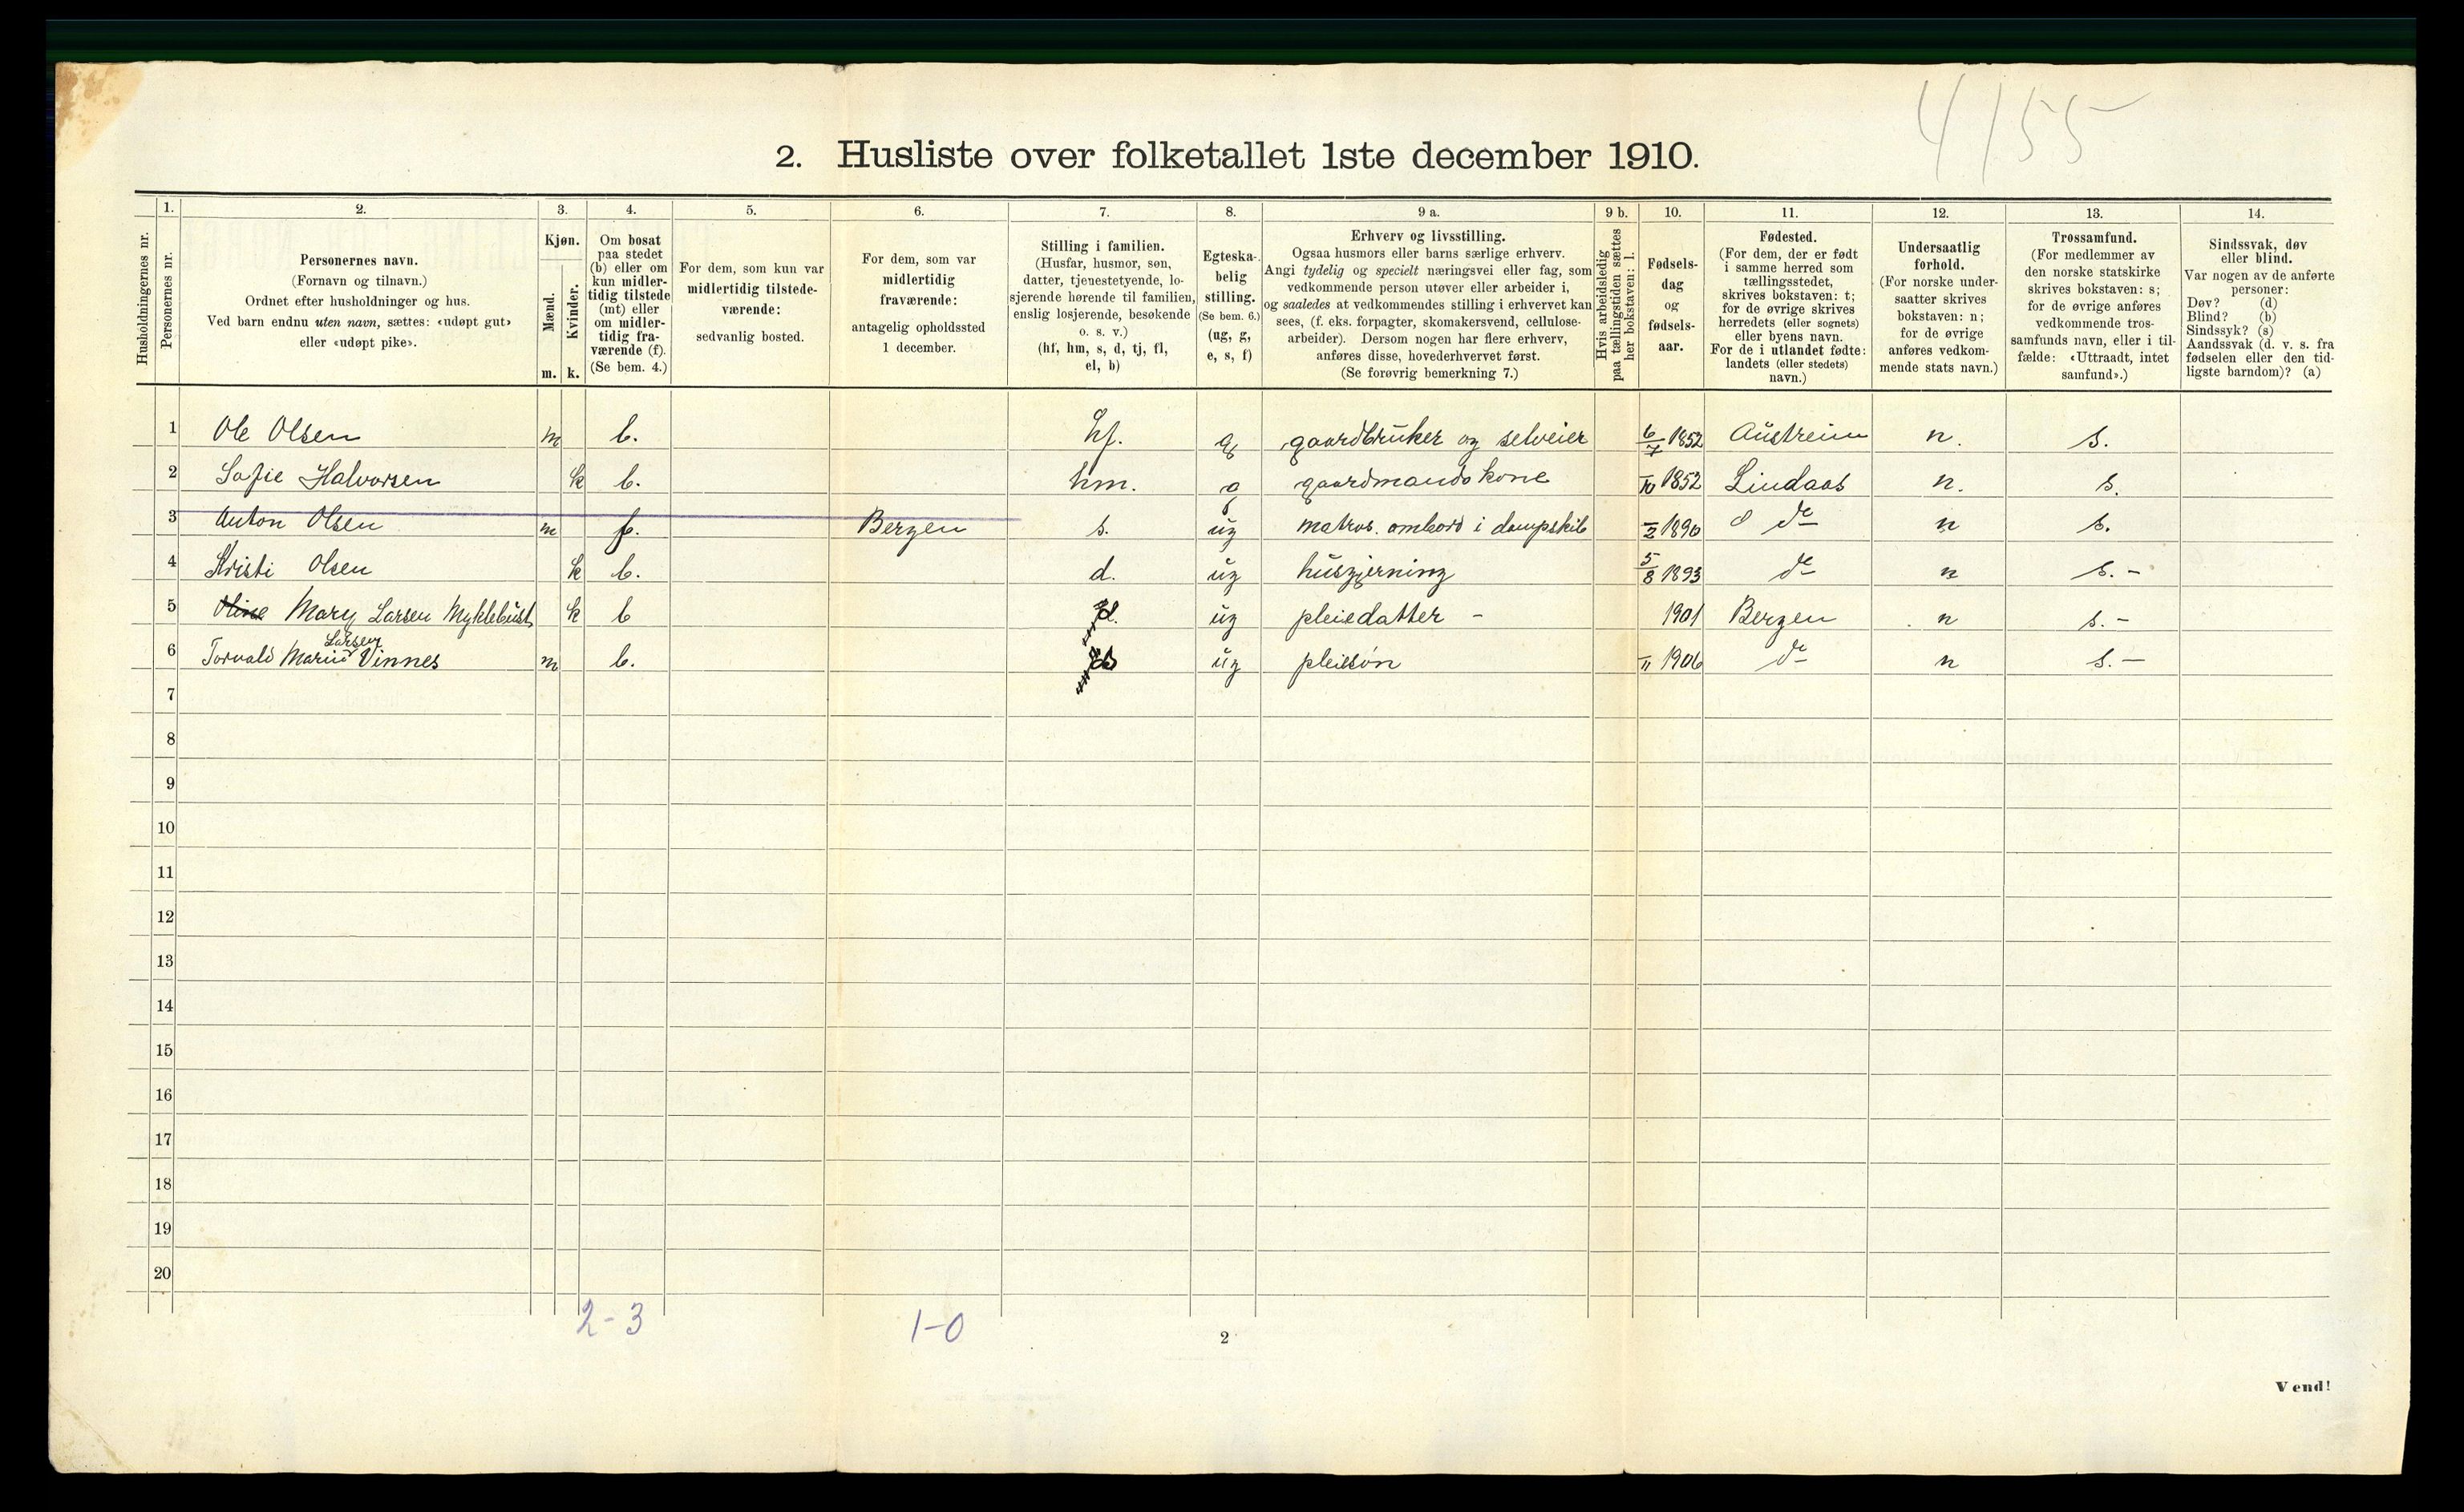 4/155
2. Husliste over folketallet 1ste december 1910.
Husholdningernes nr.
1.
Personernes nr.
2.
Personernes navn.
(Fornavn og tilnavn.)
Ordnet efter husholdninger og hus.
Ved barn endnu uten navn, sættes: «udøpt gut»
eller «udøpt pike».
3.
Kjøn.
Mænd.
Kvinder.
m. k.
4.
Om bosat
paa stedet
(b) eller om
kun midler-
tidig tilstede
(mt) eller
om midler-
tidig fra-
værende (f).
(Se bem. 4.)
5.
For dem, som kun var
midlertidig tilstede-
værende:
sedvanlig bosted.
6.
For dem, som var
midlertidig
fraværende:
antagelig opholdssted
1 december.
7.
Stilling i familien.
(Husfar, husmor, søn,
datter, tjenestetyende, lo-
sjerende hørende til familien,
enslig losjerende, besøkende
o. s. v.)
(hf, hm, s, d, tj, fl,
el, b)
8.
Egteska-
belig
stilling.
(Se bem. 6.)
(ug, g,
e, s, f)
9 a.
Erhverv og livsstilling.
Ogsaa husmors eller barns særlige erhverv.
Angi tydelig og specielt næringsvei eller fag, som
vedkommende person utøver eller arbeider i,
og saaledes at vedkommendes stilling i erhvervet kan
sees, (f. eks. forpagter, skomakersvend, cellulose-
arbeider). Dersom nogen har flere erhverv,
anføres disse, hovederhvervet først.
(Se forøvrig bemerkning 7.)
9 b.
Hvis arbeidsledig
paa tællingstiden sættes
her bokstaven: l.
10.
Fødsels-
dag
og
fødsels-
aar.
11.
Fødested.
(For dem, der er født
i samme herred som
tællingsstedet,
skrives bokstaven: t;
for de øvrige skrives
herredets (eller sognets)
eller byens navn.
For de i utlandet fødte:
landets (eller stedets)
navn.)
12.
Undersaatlig
forhold.
(For norske under-
saatter skrives
bokstaven: n;
for de øvrige
anføres vedkom-
mende stats navn.)
13.
Trossamfund.
(For medlemmer av
den norske statskirke
skrives bokstaven: s;
for de øvrige anføres
vedkommende tros-
samfunds navn, eller i til-
fælde: «Uttraadt, intet
samfund».)
14.
Sindssvak, døv
eller blind.
Var nogen av de anførte
personer:
Døv? (d)
Blind? (b)
Sindssyk? (s)
Aandssvak (d. v. s. fra
fødselen eller den tid-
ligste barndom)? (a)
1 Ole Olsen m b. hf. g gaardbruker og selveier 6/7 1852 Austreim n. s.
2 Sofie Halvorsen k b. hm. g gaardmandskone /10 1852 Lindaas n. s.
3 Anton Olsen m f. Bergen s. ug matros ombord i dampskib /2 1890 do n s.
4 Kristi Olsen k b. d. ug husgjerning 5/8 1893 do n s. -
5 Oline Mary Larsen Myklebust k b d. ug pleiedatter - 1901 Bergen n s. -
6 Torvald Marius Larsen Vinnes m b. ug pleiesøn /11 1906 do n s. -
7
8
9
10
11
12
13
14
15
16
17
18
19
20
2-3 1-0
2
Vend!